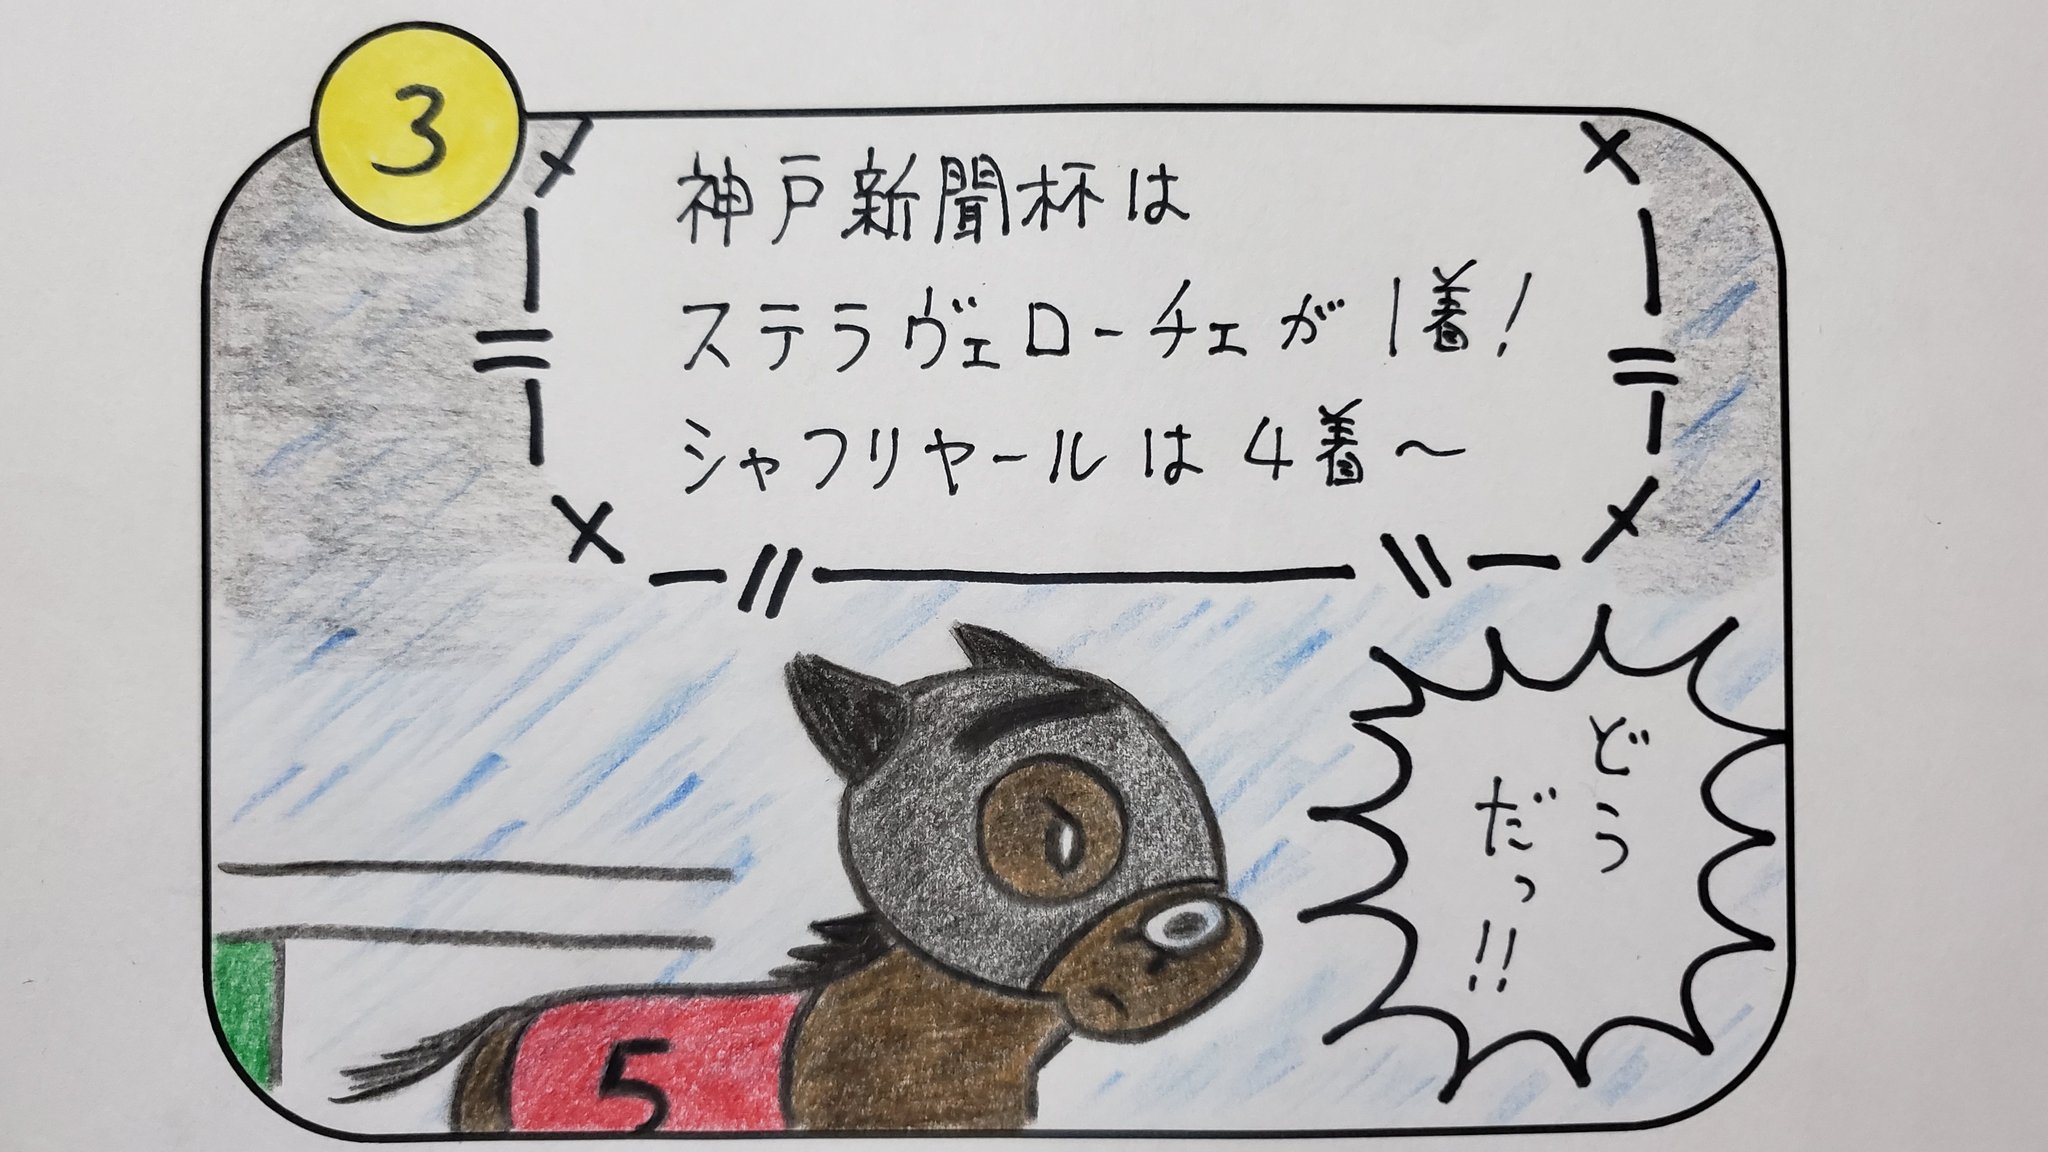 3
神戸新聞杯は
ステラヴェローチェが1着!
シャフリヤールは4着～
どう
だっ!!
5